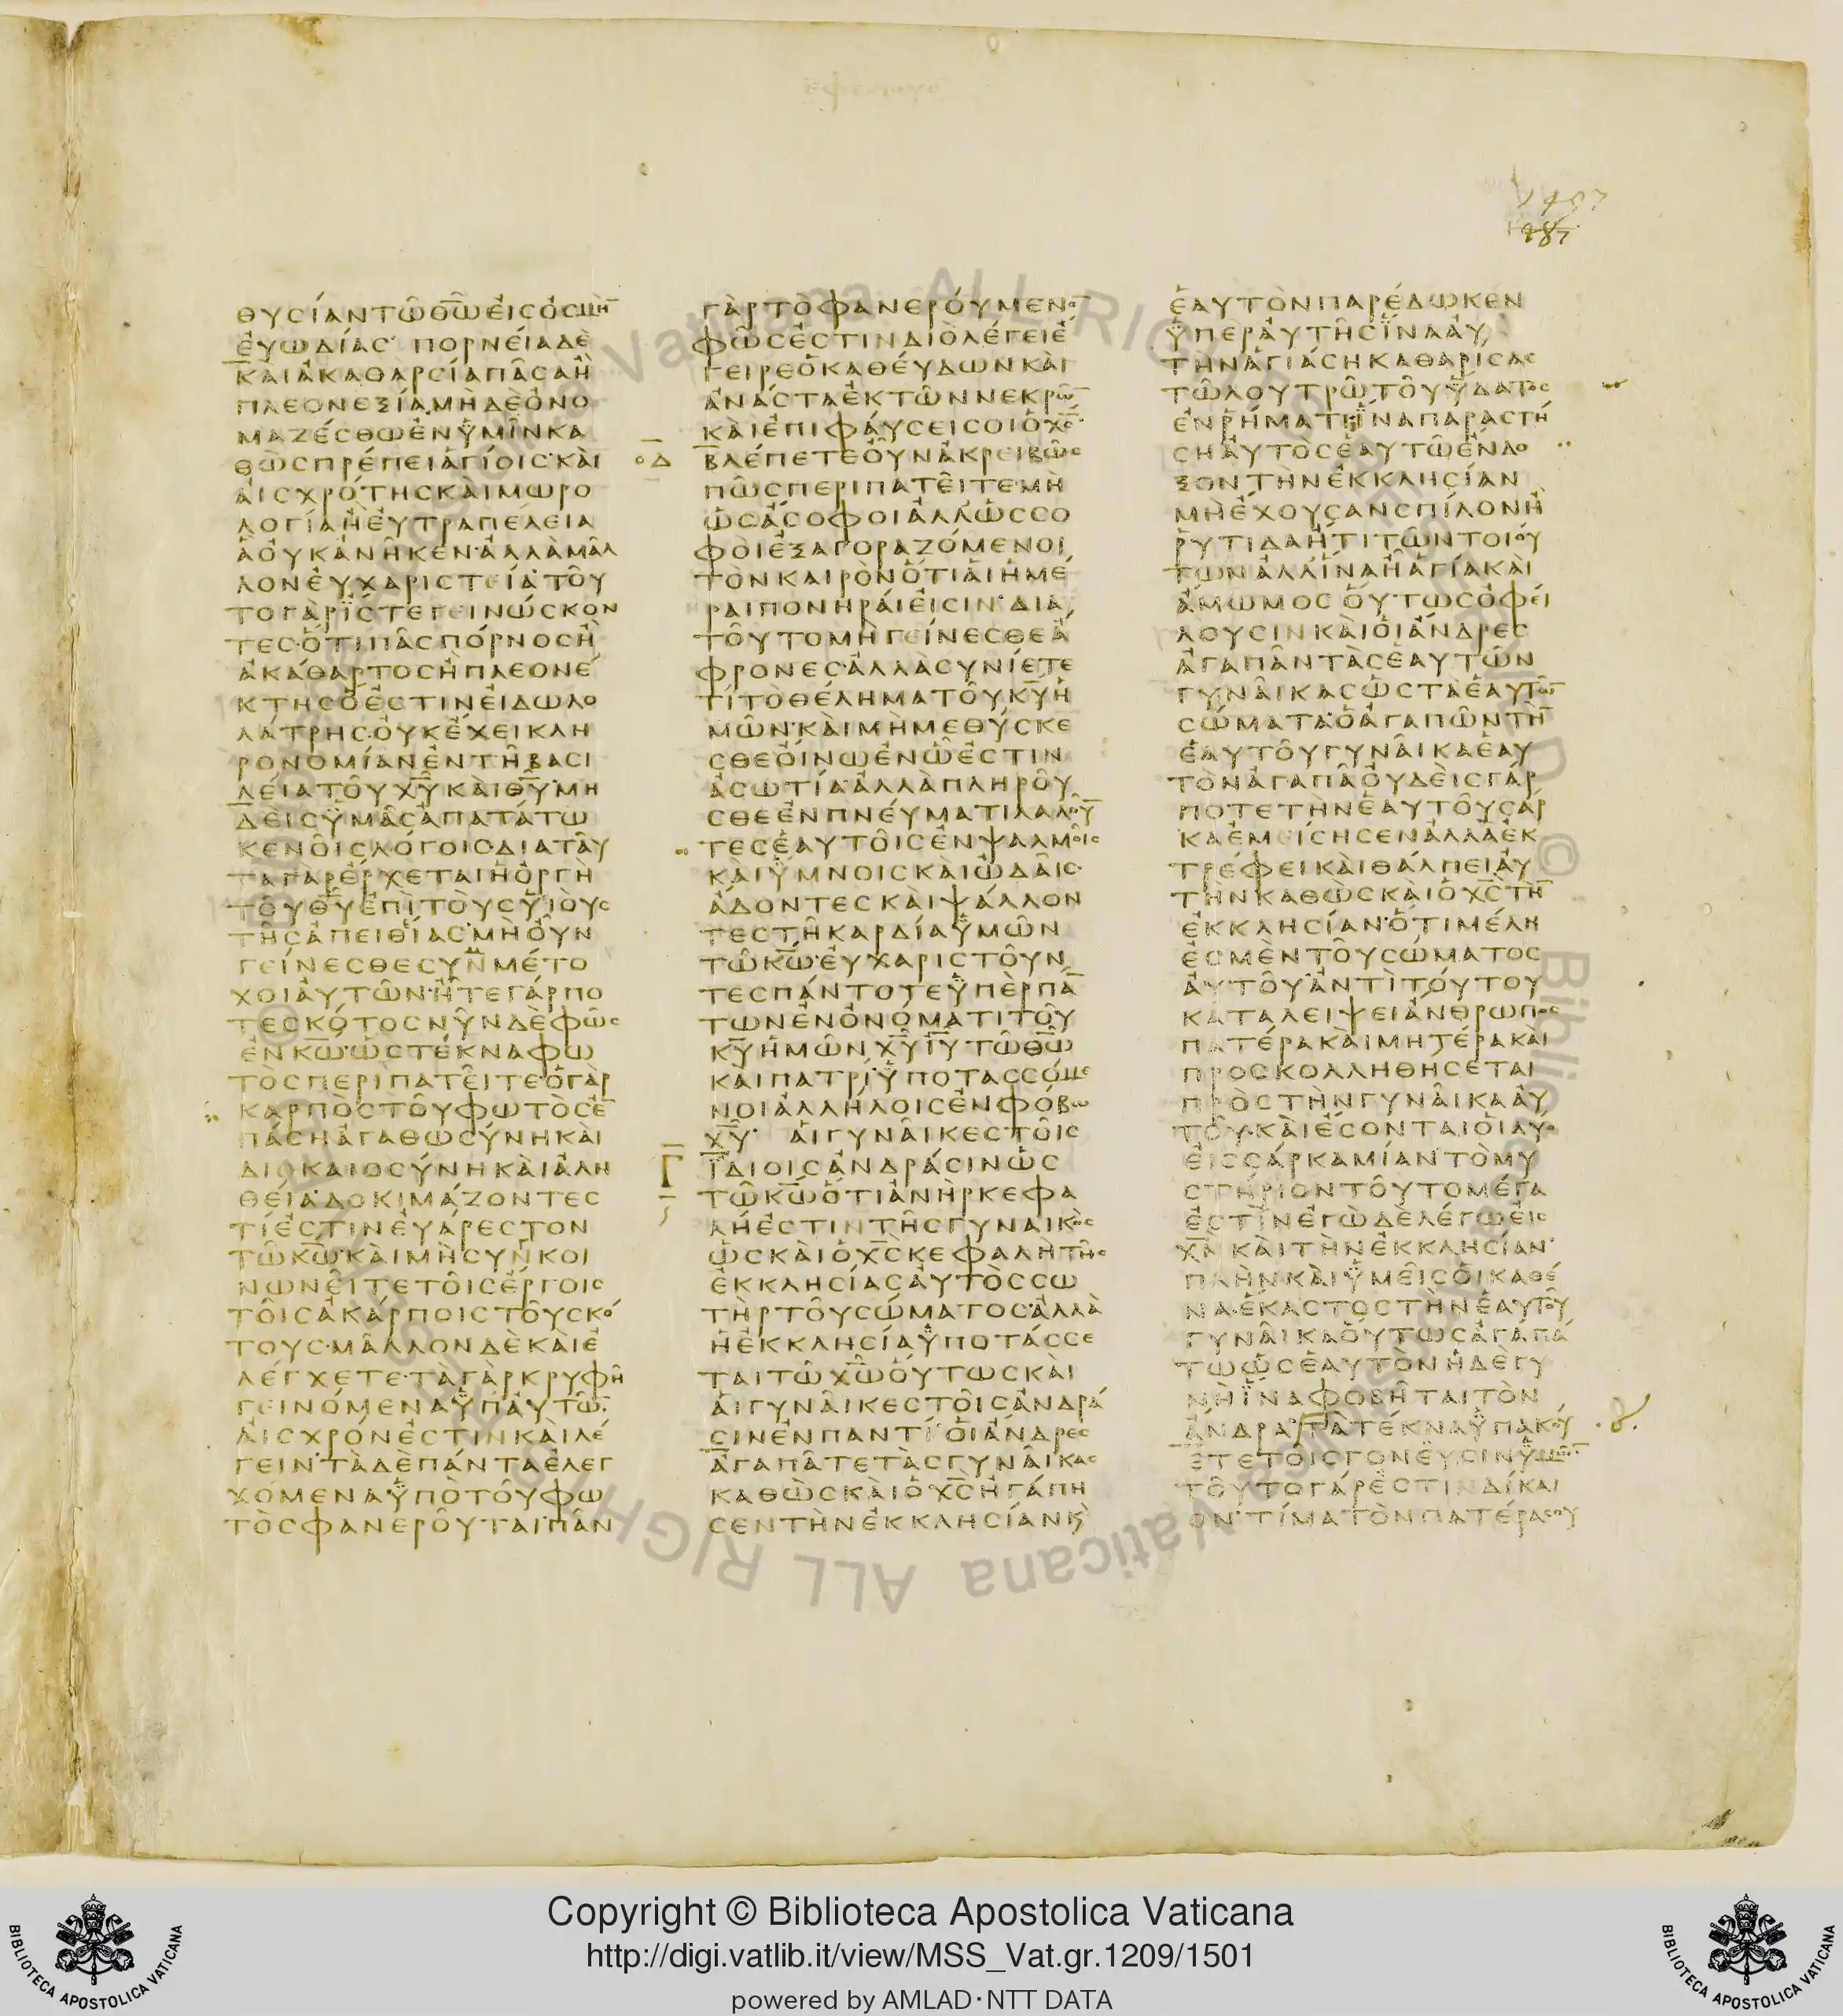 εφεσιους
1497
987
ΘΥCΙΑΝΤΩΘΩΕΙCΟCΜΗ
ΕΥΩΔΙΑC ΠΟΡΝΕΙΑΔΕ
ΚΑΙΑΚΑΘΑΡCΙΑΠΑCΑΗ
ΠΛΕΟΝΕΞΙΑΜΗΔΕΟΝΟ
ΜΑΖΕCΘΩΕΝΥΜΙΝΚΑ
ΘΩCΠΡΕΠΕΙΑΓΙΟΙC·ΚΑΙ
ΑΙCΧΡΟΤΗCΚΑΙΜΩΡΟ
ΛΟΓΙΑΗΕΥΤΡΑΠΕΛΕΙΑ
ΑΟΥΚΑΝΗΚΕΝ·ΑΛΛΑΜΑΛ
ΛΟΝΕΥΧΑΡΙCΤΕΙΑ·ΤΟΥ
ΤΟΓΑΡΪCΤΕΓΕΙΝΩCΚΟΝ
ΤΕC·ΟΤΙΠΑCΠΟΡΝΟCΗ
ΑΚΑΘΑΡΤΟCΗΠΛΕΟΝΕ
ΚΤΗCΟΕCΤΙΝΕΙΔΩΛΟ
ΛΑΤΡΗC·ΟΥΚΕΧΕΙΚΛΗ
ΡΟΝΟΜΙΑΝΕΝΤΗΒΑCΙ
ΛΕΙΑΤΟΥΧΥΚΑΙΘΥ·ΜΗ
ΔΕΙCΥΜΑCΑΠΑΤΑΤΩ
ΚΕΝΟΙCΛΟΓΟΙC·ΔΙΑΤΑΥ
ΤΑΓΑΡΕΡΧΕΤΑΙΗΟΡΓΗ
ΤΟΥΘΥΕΠΙΤΟΥCΥΙΟΥC
ΤΗCΑΠΕΙΘΙΑC·ΜΗΟΥΝ
ΓΕΙΝΕCΘΕCΥΝΜΕΤΟ
ΧΟΙΑΥΤΩΝ·ΗΤΕΓΑΡΠΟ
ΤΕCΚΟΤΟCΝΥΝΔΕΦΩC
ΕΝΚΩ·ΩCΤΕΚΝΑΦΩ
ΤΟCΠΕΡΙΠΑΤΕΙΤΕ·ΟΓΑΡ
ΚΑΡΠΟCΤΟΥΦΩΤΟCΕ
ΠΑCΗΑΓΑΘΩCΥΝΗΚΑΙ
ΔΙΟΚΑΙΟCΥΝΗΚΑΙΑΛΗ
ΘΕΙΑ·ΔΟΚΙΜΑΖΟΝΤΕC
ΤΙΕCΤΙΝΕΥΑΡΕCΤΟΝ
ΤΩΚΩ·ΚΑΙΜΗCΥΝΚΟΙ
ΝΩΝΕΙΤΕΤΟΙCΕΡΓΟΙC
ΤΟΙCΑΚΑΡΠΟΙCΤΟΥCΚΟ
ΤΟΥC·ΜΑΛΛΟΝΔΕΚΑΙΕ
ΛΕΓΧΕΤΕ·ΤΑΓΑΡΚΡΥΦΗ
ΓΕΙΝΟΜΕΝΑΥΠΑΥΤΩ
ΑΙCΧΡΟΝΕCΤΙΝΚΑΙΛΕ
ΓΕΙΝ·ΤΑΔΕΠΑΝΤΑΕΛΕΓ
ΧΟΜΕΝΑΥΠΟΤΟΥΦΩ
ΤΟCΦΑΝΕΡΟΥΤΑΙ·ΠΑΝ
ΓΑΡΤΟΦΑΝΕΡΟΥΜΕΝΟ
ΦΩCΕCΤΙΝΔΙΟΛΕΓΕΙΕ
ΓΕΙΡΕΟΚΑΘΕΥΔΩΝΚΑΙ
ΑΝΑCΤΑΕΚΤΩΝΝΕΚΡΩ
ΚΑΙΕΠΙΦΑΥCΕΙCΟΙΟΧC·
ΟΔ ΒΛΕΠΕΤΕΟΥΝΑΚΡΕΙΒΩC
ΠΩCΠΕΡΙΠΑΤΕΙΤΕ·ΜΗ
ΩCΑCΟΦΟΙΑΛΛΩCCΟ
ΦΟΙΕΞΑΓΟΡΑΖΟΜΕΝΟΙ
ΤΟΝΚΑΙΡΟΝΟΤΙΑΙΗΜΕ
ΡΑΙΠΟΝΗΡΑΙΕΙCΙΝ·ΔΙΑ
ΤΟΥΤΟΜΗΓΕΙΝΕCΘΕΑ
ΦΡΟΝΕC·ΑΛΛΑCΥΝΙΕΤΕ
ΤΙΤΟΘΕΛΗΜΑΤΟΥΚΥΗ
ΜΩΝ·ΚΑΙΜΗΜΕΘΥCΚΕ
CΘΕΟΙΝΩΕΝΩΕCΤΙΝ
ΑCΩΤΙΑ·ΑΛΛΑΠΛΗΡΟΥ
CΘΕΕΝΠΝΕΥΜΑΤΙΛΑΛΟΥ
ΤΕCΕΑΥΤΟΙCΕΝΨΑΛΜΟΙC
ΚΑΙΥΜΝΟΙCΚΑΙΩΔΑΙC·
ΑΔΟΝΤΕCΚΑΙΨΑΛΛΟΝ
ΤΕCΤΗΚΑΡΔΙΑΥΜΩΝ
ΤΩΚΩ·ΕΥΧΑΡΙCΤΟΥΝ
ΤΕCΠΑΝΤΟΤΕΥΠΕΡΠΑ
ΤΩΝΕΝΟΝΟΜΑΤΙΤΟΥ
ΚΥΗΜΩΝΧΥΙΥΤΩΘΩ
ΚΑΙΠΑΤΡΙ·ΥΠΟΤΑCCΟΜΕ
ΝΟΙΑΛΛΗΛΟΙCΕΝΦΟΒΩ
ΧΥ· ΑΙΓΥΝΑΙΚΕCΤΟΙC
Γ ΪΔΙΟΙCΑΝΔΡΑCΙΝΩC
ΤΩΚΩΟΤΙΑΝΗΡΚΕΦΑ
ΛΗΕCΤΙΝΤΗCΓΥΝΑΙΚΟC
ΩCΚΑΙΟΧCΚΕΦΑΛΗΤΗC
ΕΚΚΛΗCΙΑCΑΥΤΟCCΩ
ΤΗΡΤΟΥCΩΜΑΤΟC·ΑΛΛΑ
ΗΕΚΚΛΗCΙΑΥΠΟΤΑCCΕ
ΤΑΙΤΩΧΩΟΥΤΩCΚΑΙ
ΑΙΓΥΝΑΙΚΕCΤΟΙCΑΝΔΡΑ
CΙΝΕΝΠΑΝΤΙ·ΟΙΑΝΔΡΕC
ΑΓΑΠΑΤΕΤΑCΓΥΝΑΙΚΑC
ΚΑΘΩCΚΑΙΟΧCΗΓΑΠΗ
CΕΝΤΗΝΕΚΚΛΗCΙΑΝΚ
ΕΑΥΤΟΝΠΑΡΕΔΩΚΕΝ
ΥΠΕΡΑΥΤΗCΪΝΑΑΥ
ΤΗΝΑΓΙΑCΗΚΑΘΑΡΙCΑC
ΤΩΛΟΥΤΡΩΤΟΥΥΔΑΤΟC
ΕΝΡΗΜΑΤΙΪΝΑΠΑΡΑCΤΗ
CΗΑΥΤΟCΕΑΥΤΩΕΝΔΟ
ΞΟΝΤΗΝΕΚΚΛΗCΙΑΝ
ΜΗΕΧΟΥCΑΝCΠΙΛΟΝΗ
ΡΥΤΙΔΑΗΤΙΤΩΝΤΟΙΟΥ
ΤΩΝΑΛΛΙΝΑΗΑΓΙΑΚΑΙ
ΑΜΩΜΟC ΟΥΤΩCΟΦΕΙ
ΛΟΥCΙΝΚΑΙΟΙΑΝΔΡΕC
ΑΓΑΠΑΝΤΑCΕΑΥΤΩΝ
ΓΥΝΑΙΚΑCΩCΤΑΕΑΥΤΩ
CΩΜΑΤΑ·ΟΑΓΑΠΩΝΤΗ
ΕΑΥΤΟΥΓΥΝΑΙΚΑΕΑΥ
ΤΟΝΑΓΑΠΑΟΥΔΕΙCΓΑΡ
ΠΟΤΕΤΗΝΕΑΥΤΟΥCΑΡ
ΚΑΕΜΕΙCΗCΕΝΑΛΛΑΕΚ
ΤΡΕΦΕΙΚΑΙΘΑΛΠΕΙΑΥ
ΤΗΝΚΑΘΩCΚΑΙΟΧCΤΗ
ΕΚΚΛΗCΙΑΝ·ΟΤΙΜΕΛΗ
ΕCΜΕΝΤΟΥCΩΜΑΤΟC
ΑΥΤΟΥ·ΑΝΤΙΤΟΥΤΟΥ
ΚΑΤΑΛΕΙΨΕΙΑΝΘΡΩΠΟC
ΠΑΤΕΡΑΚΑΙΜΗΤΕΡΑΚΑΙ
ΠΡΟCΚΟΛΛΗΘΗCΕΤΑΙ
ΠΡΟCΤΗΝΓΥΝΑΙΚΑΑΥ
ΤΟΥ·ΚΑΙΕCΟΝΤΑΙΟΙΔΥΟ
ΕΙCCΑΡΚΑΜΙΑΝ·ΤΟΜΥ
CΤΗΡΙΟΝΤΟΥΤΟΜΕΓΑ
ΕCΤΙΝΕΓΩΔΕΛΕΓΩΕΙC
ΧΝΚΑΙΤΗΝΕΚΚΛΗCΙΑΝ·
ΠΛΗΝΚΑΙΥΜΕΙCΟΙΚΑΘΕ
ΝΑ·ΕΚΑCΤΟCΤΗΝΕΑΥΤΟΥ
ΓΥΝΑΙΚΑΟΥΤΩCΑΓΑΠΑ
ΤΩΩCΕΑΥΤΟΝΗΔΕΓΥ
ΝΗΪΝΑΦΟΒΗΤΑΙΤΟΝ
ΑΝΔΡΑ·ΤΑΤΕΚΝΑΥΠΑΚΟΥ
ΕΤΕΤΟΙCΓΟΝΕΥCΙΝΥΜΩ
ΤΟΥΤΟΓΑΡΕCΤΙΝΔΙΚΑΙ
ΟΝ·ΤΙΜΑΤΟΝΠΑΤΕΡΑCΟΥ
Copyright © Biblioteca Apostolica Vaticana
http://digi.vatlib.it/view/MSS_Vat.gr.1209/1501
powered by AMLAD·NTT DATA
BIBLIOTECA APOSTOLICA VATICANA
BIBLIOTECA APOSTOLICA VATICANA